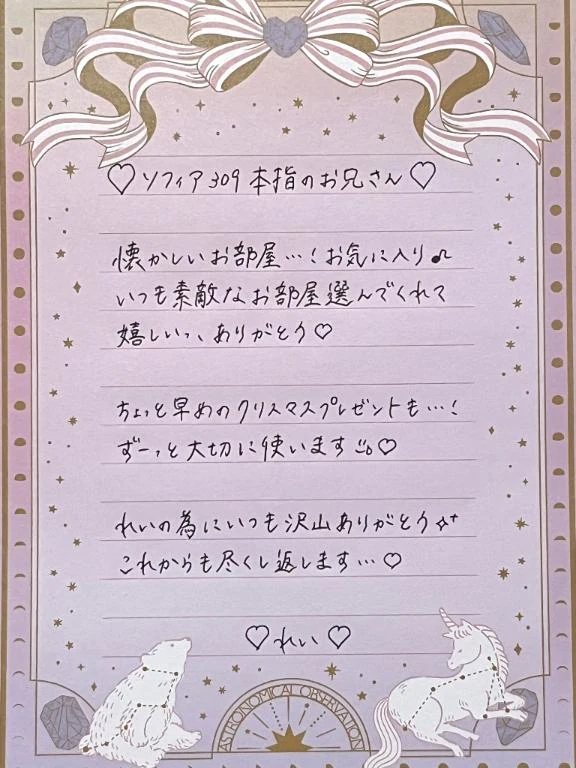 ♡ソフィア309本指のお兄さん♡
懐かしいお部屋…!お気に入り♫
いつも素敵なお部屋選んでくれて
嬉しいっ、ありがとう♡
ちょっと早めのクリスマスプレゼントも…!
ずーっと大切に使います♡
れいの為にいつも沢山ありがとう
これからも尽くし返します…♡
♡れい♡
ASTRONOMICAL OBSERVATION